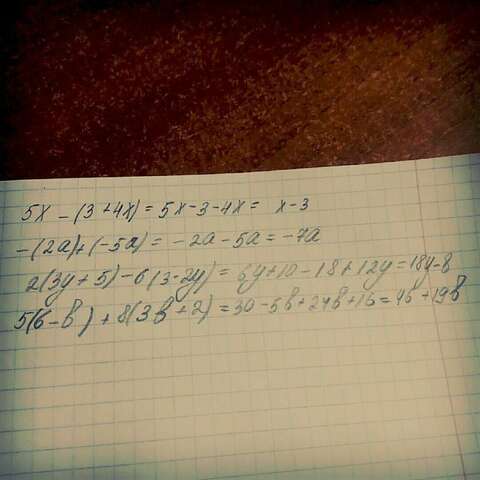 5x - (3 + 4x) = 5x - 3 - 4x = x - 3
-(2a) + (-5a) = -2a - 5a = -7a
2(3y + 5) - 6(3 - 2y) = 6y + 10 - 18 + 12y = 18y - 8
5(6 - b) + 8(3b + 2) = 30 - 5b + 24b + 16 = 46 + 19b